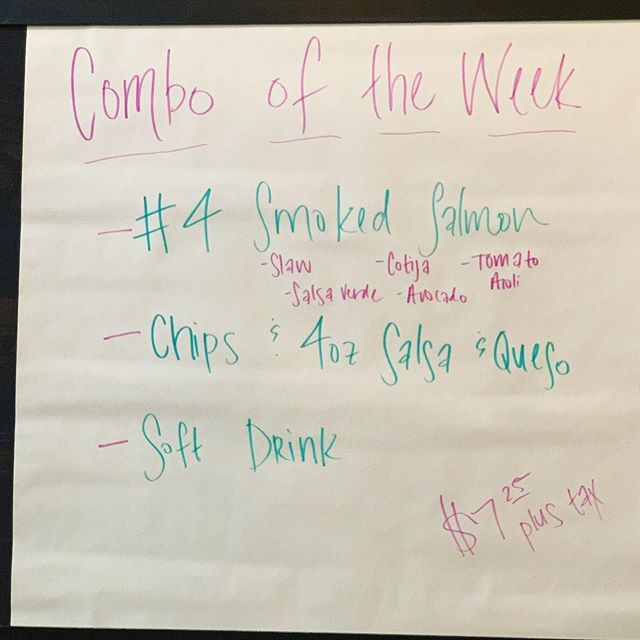 Combo of the Week
- #4 Smoked Salmon
- Slaw - Cotija - Tomato Aioli
- Salsa Verde - Avocado
- Chips & 4oz Salsa & Queso
- Soft Drink
$7.25 plus tax